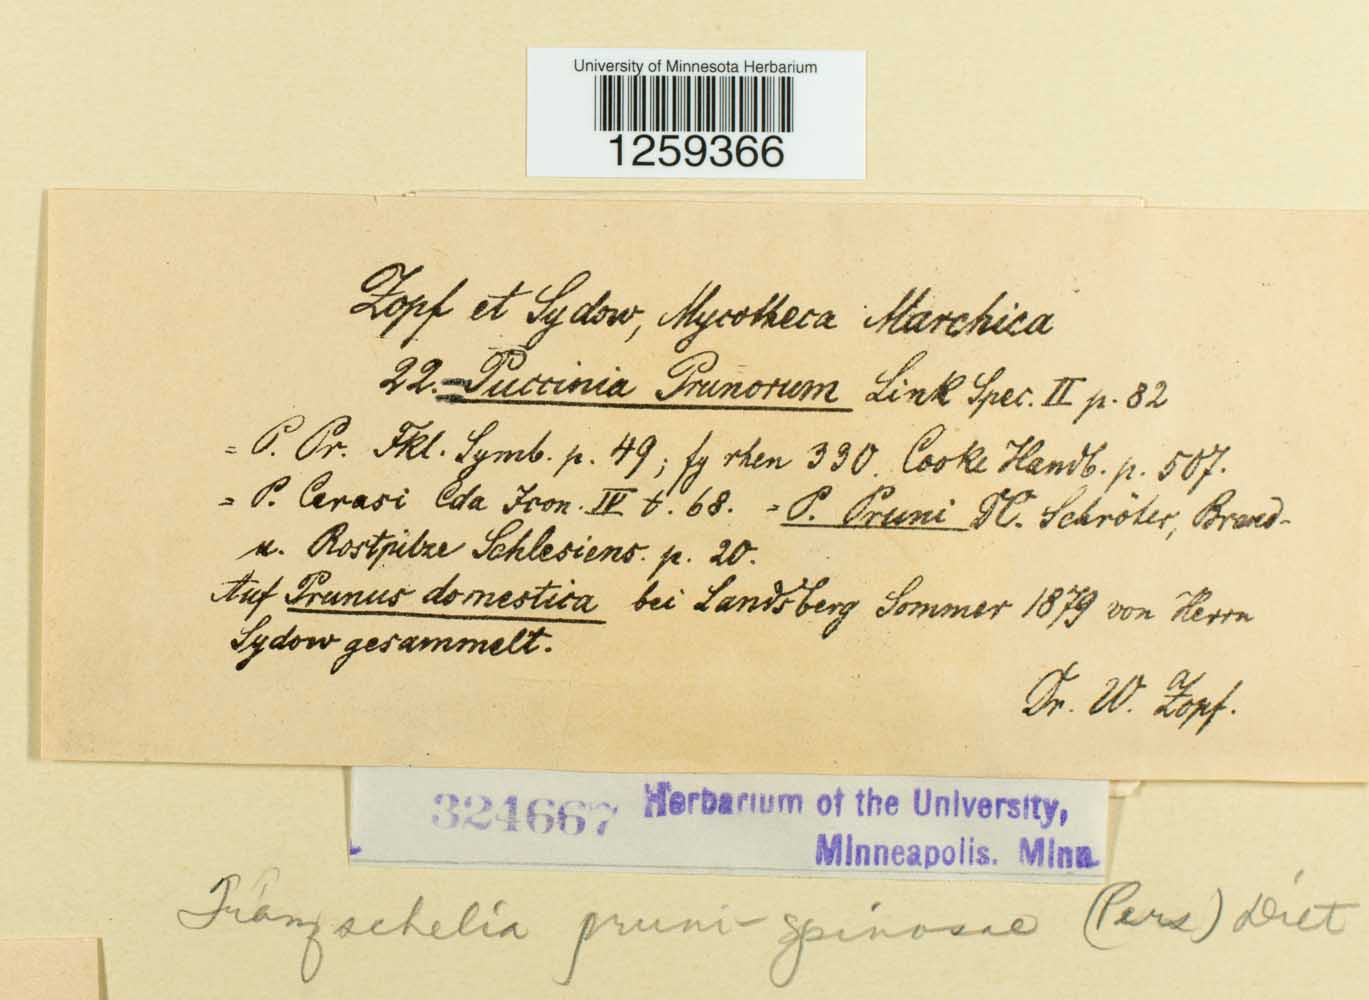 University of Minnesota Herbarium
1259366
Zopf et Sydow, Mycotheca Marchica
22. Puccinia Prunorum Link Spec. II p. 82
= P. Pr. Fkl. Symb. p. 49; fg rhen 330. Cooke Handb. p. 507.
= P. Cerasi Cda Icon. IV t. 68. = P. Pruni DC. Schröter, Brand-
u. Rostpilze Schlesiens. p. 20.
Auf Prunus domestica bei Landsberg Sommer 1879 von Herrn
Sydow gesammelt.
Dr. W. Zopf.
324667 Herbarium of the University,
Minneapolis. Minn.
Tranzschelia pruni-spinosae (Pers) Diet